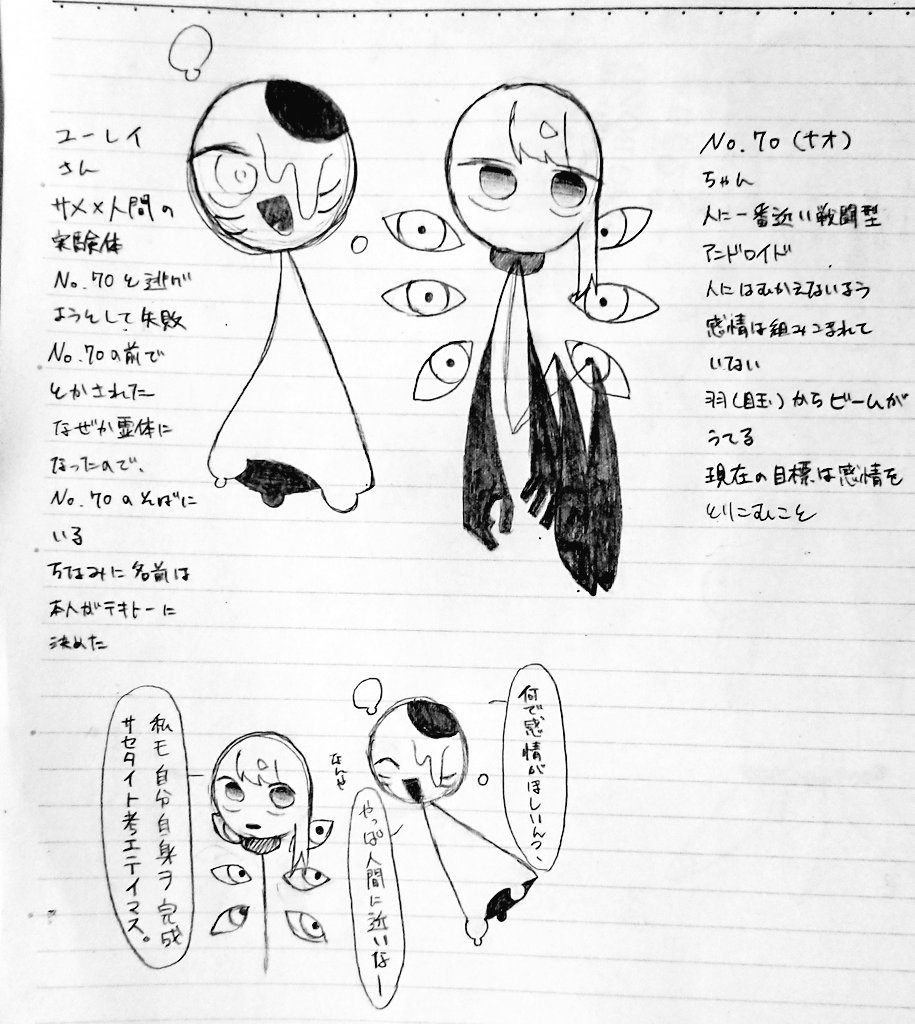 ユーレイ
さん
サメ×人間の
実験体
No.70と逃げ
ようとして失敗
No.70の前で
とかされた
なぜか霊体に
なったので、
No.70のそばに
いる
ちなみに名前は
本人がテキトーに
決めた
No.70(ナオ)
ちゃん
人に一番近い戦闘型
アンドロイド
人にはむかえないよう
感情は組みこまれて
いない
羽(目玉)からビームが
うてる
現在の目標は感情を
とりこむこと
何で感情がほしいんっ、
なんせ
やっぱ人間に近いなー
私モ自分自身ヲ完成
サセタイト考エテイマス。